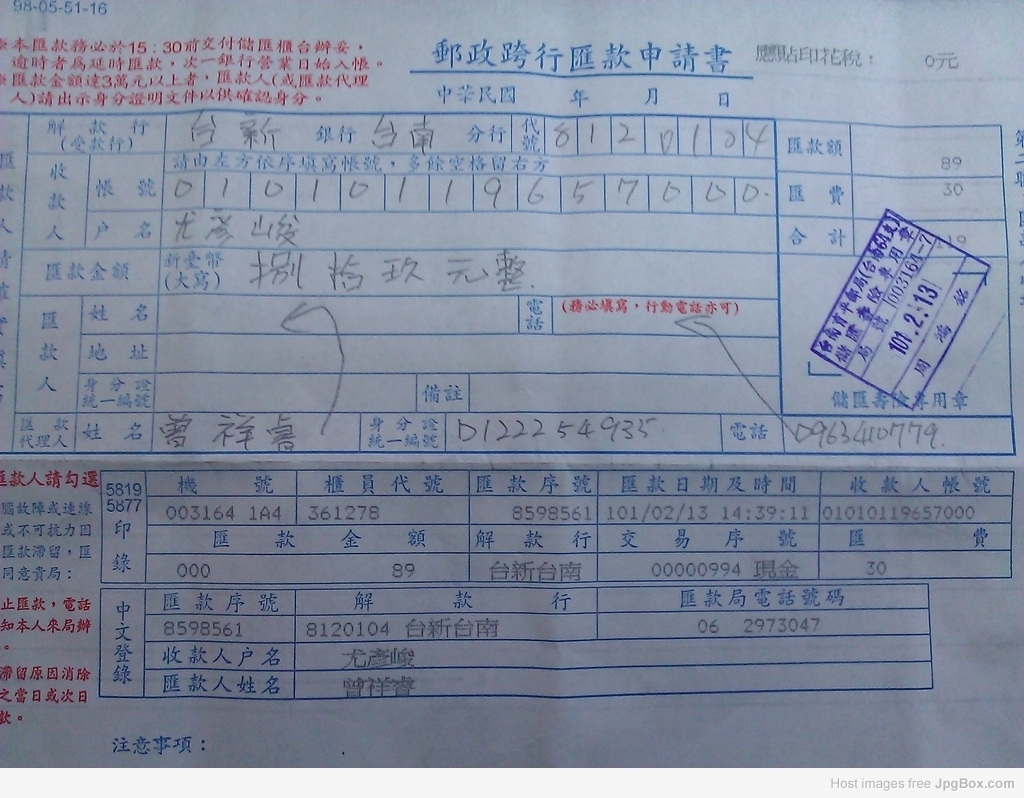 98-05-51-16
本匯款務必於15：30前交付儲匯櫃台辦妥，
逾時者為延時匯款，次一銀行營業日始入帳。
匯款金額達3萬元以上者，匯款人(或匯款代理
人)請出示身分證明文件以供確認身分。
郵政跨行匯款申請書
應貼印花稅： 0元
中華民國 年 月 日
解款行 (受款行) 台新 銀行 台南 分行 代號 8120104
匯款額 89
請由左方依序填寫帳號，多餘空格留右方
收款人 帳號 01010119657000
匯費 30
戶名 尤彥峻
合計
匯款金額 新臺幣 (大寫) 捌拾玖元整
匯款人 姓名 電話 (務必填寫，行動電話亦可)
地址
身分證統一編號 備註
儲匯壽險專用章
101.2.13
003164-7
匯款代理人 姓名 曾祥睿 身分證統一編號 D122254935 電話 0963410779
匯款人請勾選
腦故障或連線
或不可抗力因
匯款滯留，匯
同意貴局：
止匯款，電話
知本人來局辦
滯留原因消除
之當日或次日
款。
5819 5877 印錄
機號 櫃員代號 匯款序號 匯款日期及時間 收款人帳號
003164 1A4 361278 8598561 101/02/13 14:39:11 01010119657000
匯款金額 解款行 交易序號 匯費
000 89 台新台南 00000994 現金 30
中文登錄
匯款序號 解款行 匯款局電話號碼
8598561 8120104 台新台南 06 2973047
收款人戶名 尤彥峻
匯款人姓名 曾祥睿
注意事項：
Host images free JpgBox.com